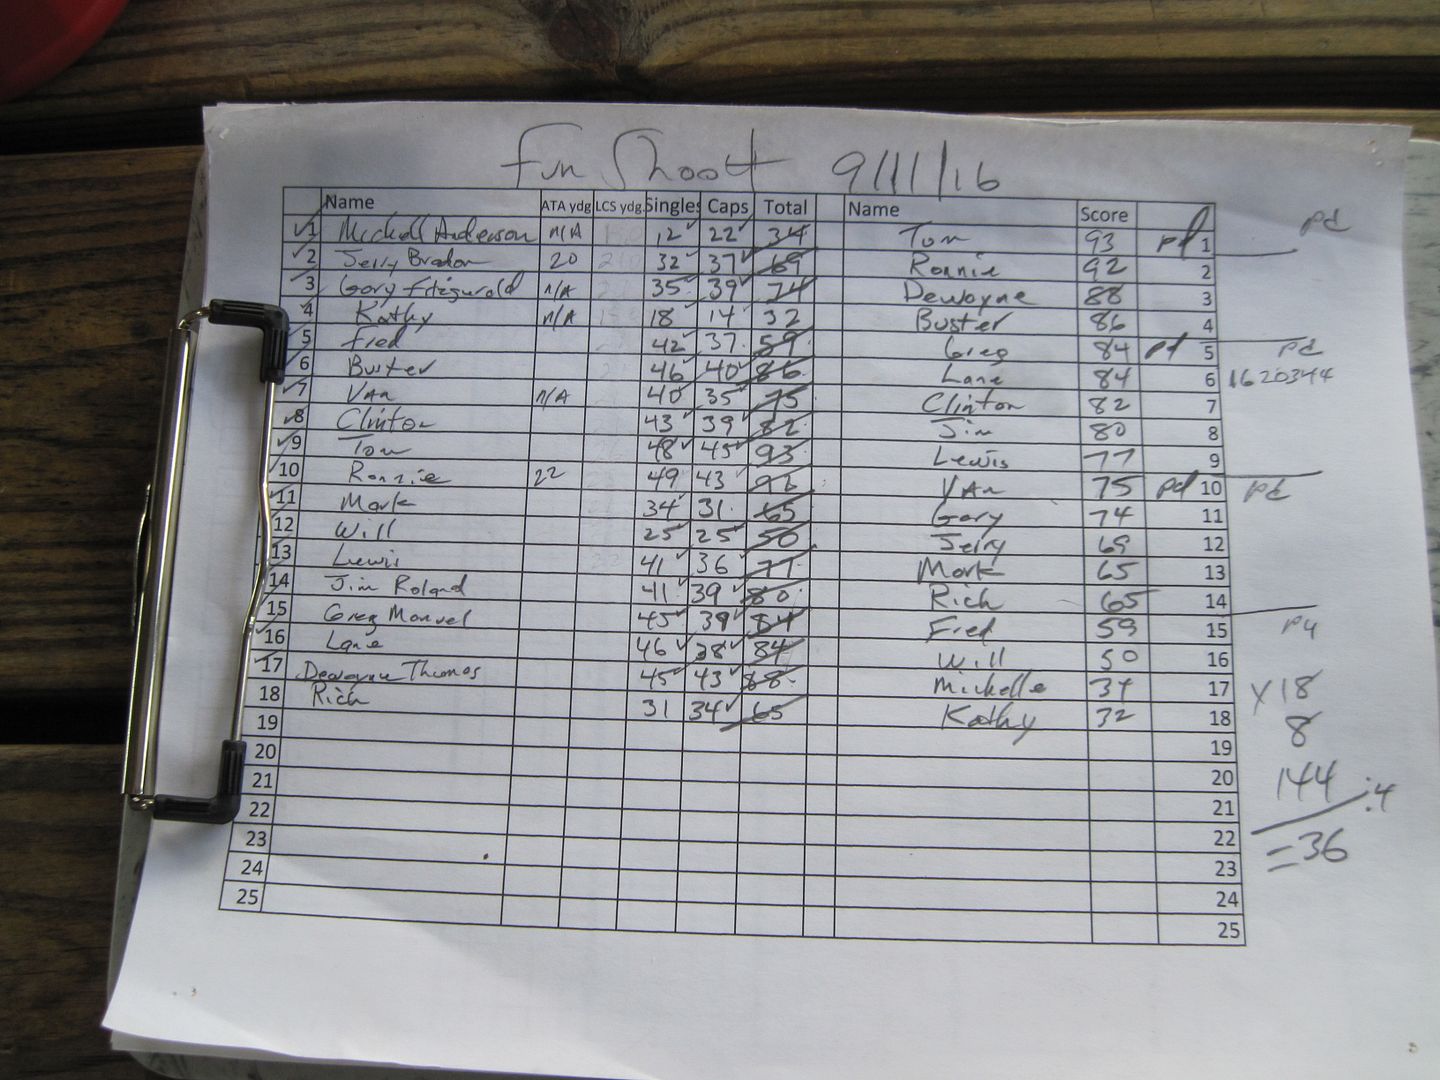 Fun Shoot 9/11/16
Name ATA ydg LCS ydg. Singles Caps Total Name Score
1 Michell Anderson n/A 12 22 34 Tom 93 pd 1 pd
2 Jerry Bradon 20 32 37 69 Ronnie 92 2
3 Gary Fitzgerald n/A 35 39 74 Dewayne 88 3
4 Kathy n/A 18 14 32 Buster 86 4
5 Fred 42 37 59 Greg 84 pd 5 pd
6 Buster 46 40 86 Lane 84 6 1620344
7 VAn n/A 40 35 75 Clinton 82 7
8 Clinton 43 39 82 Jim 80 8
9 Tom 48 45 93 Lewis 77 9
10 Ronnie 22 49 43 92 VAn 75 pd 10 pd
11 Mark 34 31 65 Gary 74 11
12 Will 25 25 50 Jerry 69 12
13 Lewis 41 36 77 Mark 65 13
14 Jim Roland 41 39 80 Rich 65 14
15 Greg Manuel 45 39 84 Fred 59 15 pd
16 Lane 46 38 84 Will 50 16
17 Dewayne Thomas 45 43 88 Michelle 34 17 X18
18 Rich 31 34 65 Kathy 32 18 8
19 19
20 20 144 :4
21 21
22 22 =36
23 23
24 24
25 25